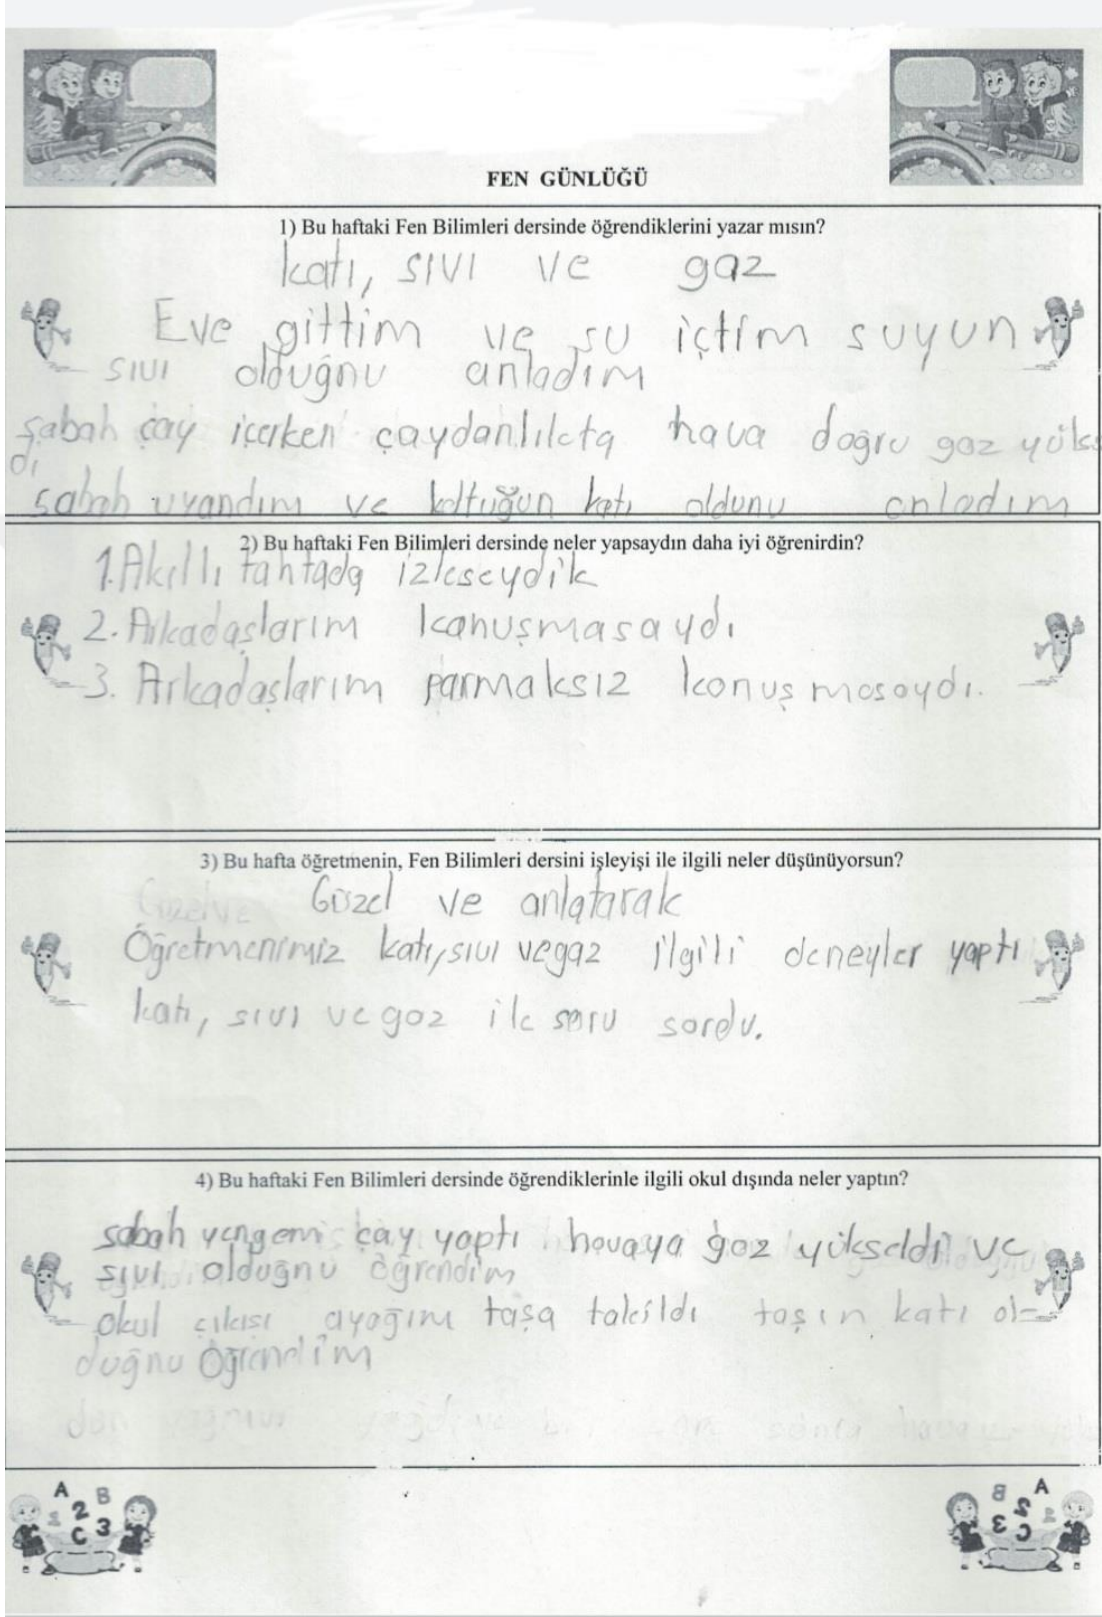 FEN GÜNLÜĞÜ
1) Bu haftaki Fen Bilimleri dersinde öğrendiklerini yazar mısın?
katı, sıvı ve gaz
Eve gittim ve su içtim suyun
sıvı olduğnu anladım
şabah çay içerken çaydanlıkta hava doğru gaz yüks
dı
sabah uyandım ve koltuğun katı oldunu anladım
2) Bu haftaki Fen Bilimleri dersinde neler yapsaydın daha iyi öğrenirdin?
1. Akıllı tahtada izleseydik
2. Arkadaşlarım konuşmasaydı
3. Arkadaşlarım parmaksız konuşmasaydı.
3) Bu hafta öğretmenin, Fen Bilimleri dersini işleyişi ile ilgili neler düşünüyorsun?
Güzel ve Güzel ve anlatarak
Öğretmenimiz katı, sıvı ve gaz ilgili deneyler yaptı
katı, sıvı ve gaz ile soru sordu.
4) Bu haftaki Fen Bilimleri dersinde öğrendiklerinle ilgili okul dışında neler yaptın?
sabah yengem çay yaptı havaya gaz yükseldi ve
sıvı olduğnu öğrendim
okul çıkısı ayağım taşa takıldı taşın katı ol-
duğnu öğrendim
A B
1 2
C 3
A B
2 2
C 3